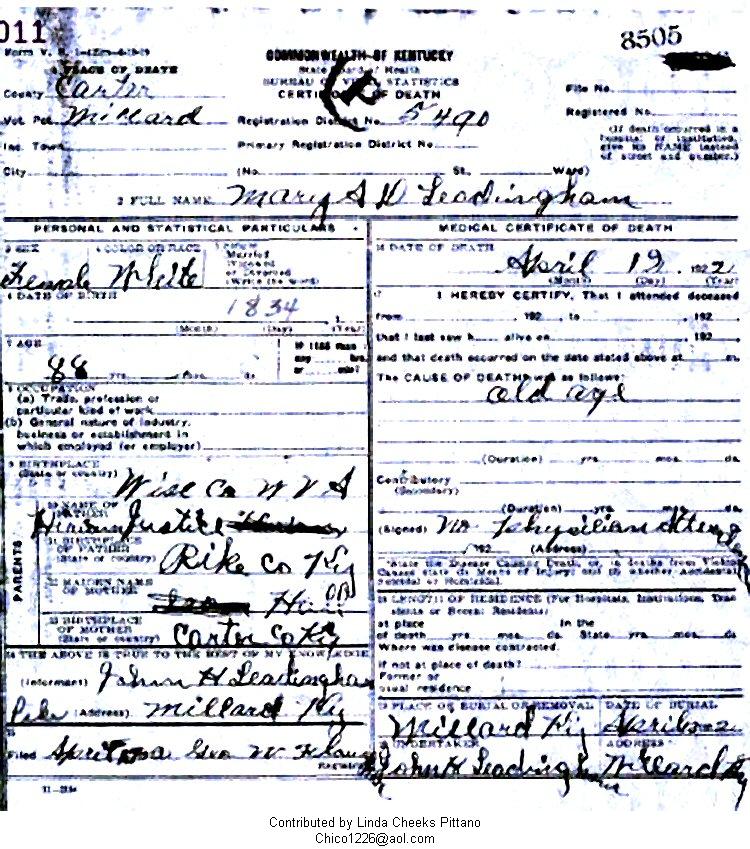 011
8505
Form V. S.
COMMONWEALTH OF KENTUCKY
State Board of Health
BUREAU OF VITAL STATISTICS
CERTIFICATE OF DEATH
PLACE OF DEATH
County Carter
Vot. Pct. Millard
Inc. Town
City
Registration District No. 5490
Primary Registration District No.
(No. St., Ward)
File No.
Registered No.
(If death occurred in a
hospital or institution,
give its NAME instead
of street and number.)
2 FULL NAME Mary S D Leadingham
PERSONAL AND STATISTICAL PARTICULARS
3 SEX
4 COLOR OR RACE
Married
Widowed
or Divorced
(Write the word)
Female White
6 DATE OF BIRTH
1834
(Month) (Day) (Year)
7 AGE
88 yrs. mos. ds.
If LESS than
8 OCCUPATION
(a) Trade, profession or
particular kind of work
(b) General nature of industry,
business or establishment in
which employed (or employer)
9 BIRTHPLACE
(State or country)
Wise Co W V A
10 NAME OF
FATHER
Hiram Justice
11 BIRTHPLACE
OF FATHER
(State or country)
Pike Co Ky
12 MAIDEN NAME
OF MOTHER
13 BIRTHPLACE
OF MOTHER
(State or country)
Carter Co Ky
PARENTS
14 THE ABOVE IS TRUE TO THE BEST OF MY KNOWLEDGE
(Informant) John H Leadingham
(Address) Millard Ky
15
Filed Geo W
MEDICAL CERTIFICATE OF DEATH
16 DATE OF DEATH
April 19, 1922
(Month) (Day) (Year)
17
I HEREBY CERTIFY, That I attended deceased
from , 192 , to , 192
that I last saw h alive on , 192
and that death occurred on the date stated above at m.
The CAUSE OF DEATH was as follows:
old age
(Duration) yrs. mos. ds.
Contributory
(Secondary)
(Duration) yrs. mos. ds.
(Signed) No Physilian
, 192 (Address)
State the Disease Causing Death, or, in deaths from Violent
Causes state (1) Means of Injury; and (2) whether Accidental,
Suicidal or Homicidal.
18 LENGTH OF RESIDENCE (For Hospitals, Institutions, Tran-
sients or Recent Residents)
at place In the
of death yrs. mos. ds. State yrs. mos. ds.
Where was disease contracted,
if not at place of death?
Former or
usual residence
19 PLACE OF BURIAL OR REMOVAL
DATE OF BURIAL
Millard Ky
20 UNDERTAKER
ADDRESS
John H Leadingham Millard Ky
Contributed by Linda Cheeks Pittano
Chico1226@aol.com